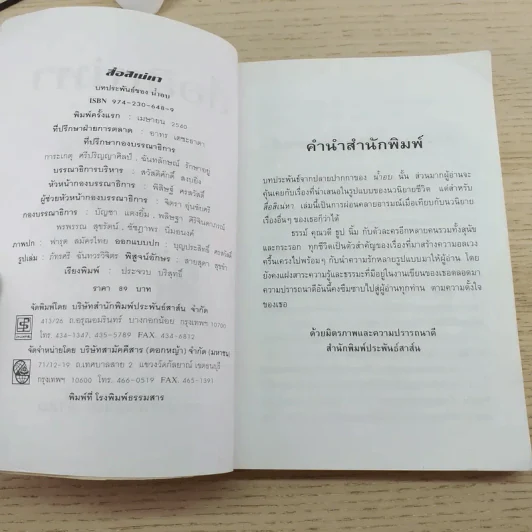 สื่อสิเน่หา
บทประพันธ์ของ น้ำอบ
ISBN 974-230-648-9
พิมพ์ครั้งแรก : เมษายน 2540
ที่ปรึกษาฝ่ายการตลาด : อาทร เตชะธาดา
ที่ปรึกษากองบรรณาธิการ
การะเกตุ ศรีปริญญาศิลป์ , ฉันทลักษณ์ รักษาอยู่
บรรณาธิการบริหาร : สวัสดิศักดิ์ คงยิ่ง
หัวหน้ากองบรรณาธิการ : พิสิษฐ์ ศรสวัสดิ์
ผู้ช่วยหัวหน้ากองบรรณาธิการ : จิตรา ขุนชัยศรี
กองบรรณาธิการ : บัญชา แดงยิ้ม , พลิษฐา ศิริจินดาภรณ์
พรพรรณ สุขรัตน์ , ธัชฎาพร นิ่มอนงค์
ภาพปก : พำรุด สมัครไทย ออกแบบปก : บุญประสิทธิ์ ศรสวัสดิ์
รูปเล่ม : ภัทรศรี ฉันทวรวิจิตร พิสูจน์อักษร : สายสุดา สุรขำ
เรียงพิมพ์ : ประจวบ บริสุทธิ์
ราคา 89 บาท
จัดพิมพ์โดย บริษัทสำนักพิมพ์ประพันธ์สาส์น จำกัด
413/26 ถ.อรุณอมรินทร์ บางกอกน้อย กรุงเทพฯ 10700
โทร 434-1347, 435-5789 FAX. 434-6812
จัดจำหน่ายโดย บริษัทสามัคคีสาร (ดอกหญ้า) จำกัด (มหาชน)
71/12-19 ถ.เทศบาลสาย 2 แขวงวัดกัลยาณ์ เขตธนบุรี
กรุงเทพฯ 10600 โทร. 466-0519 FAX. 465-1391
พิมพ์ที่ โรงพิมพ์ธรรมสาร
คำนำสำนักพิมพ์
บทประพันธ์จากปลายปากกาของ น้ำอบ นั้น ส่วนมากผู้อ่านจะ
คุ้นเคยกับเรื่องที่นำเสนอในรูปแบบของนวนิยายชีวิต แต่สำหรับ
สื่อสิเน่หา เล่มนี้เป็นการผ่อนคลายอารมณ์เมื่อเทียบกับนวนิยาย
เรื่องอื่นๆ ของเธอก็ว่าได้
ธรรม์ คุณวดี ธูป นิ่ม กับตัวละครอีกหลายคนรวมทั้งสุนัข
และกระรอก ทุกชีวิตเป็นตัวสำคัญของเรื่องที่มาสร้างความอลเวง
ครื้นเครงไปพร้อมๆ กับนำความรักหลายรูปแบบมาให้ผู้อ่าน โดย
ยังคงแฝงสาระความรู้และธรรมะที่มีอยู่ในงานเขียนของเธอตลอดมา
ความปรารถนาดีอันนี้คงซึมซาบไปสู่ผู้อ่านทุกท่าน ตามความตั้งใจ
ของเธอ
ด้วยมิตรภาพและความปรารถนาดี
สำนักพิมพ์ประพันธ์สาส์น